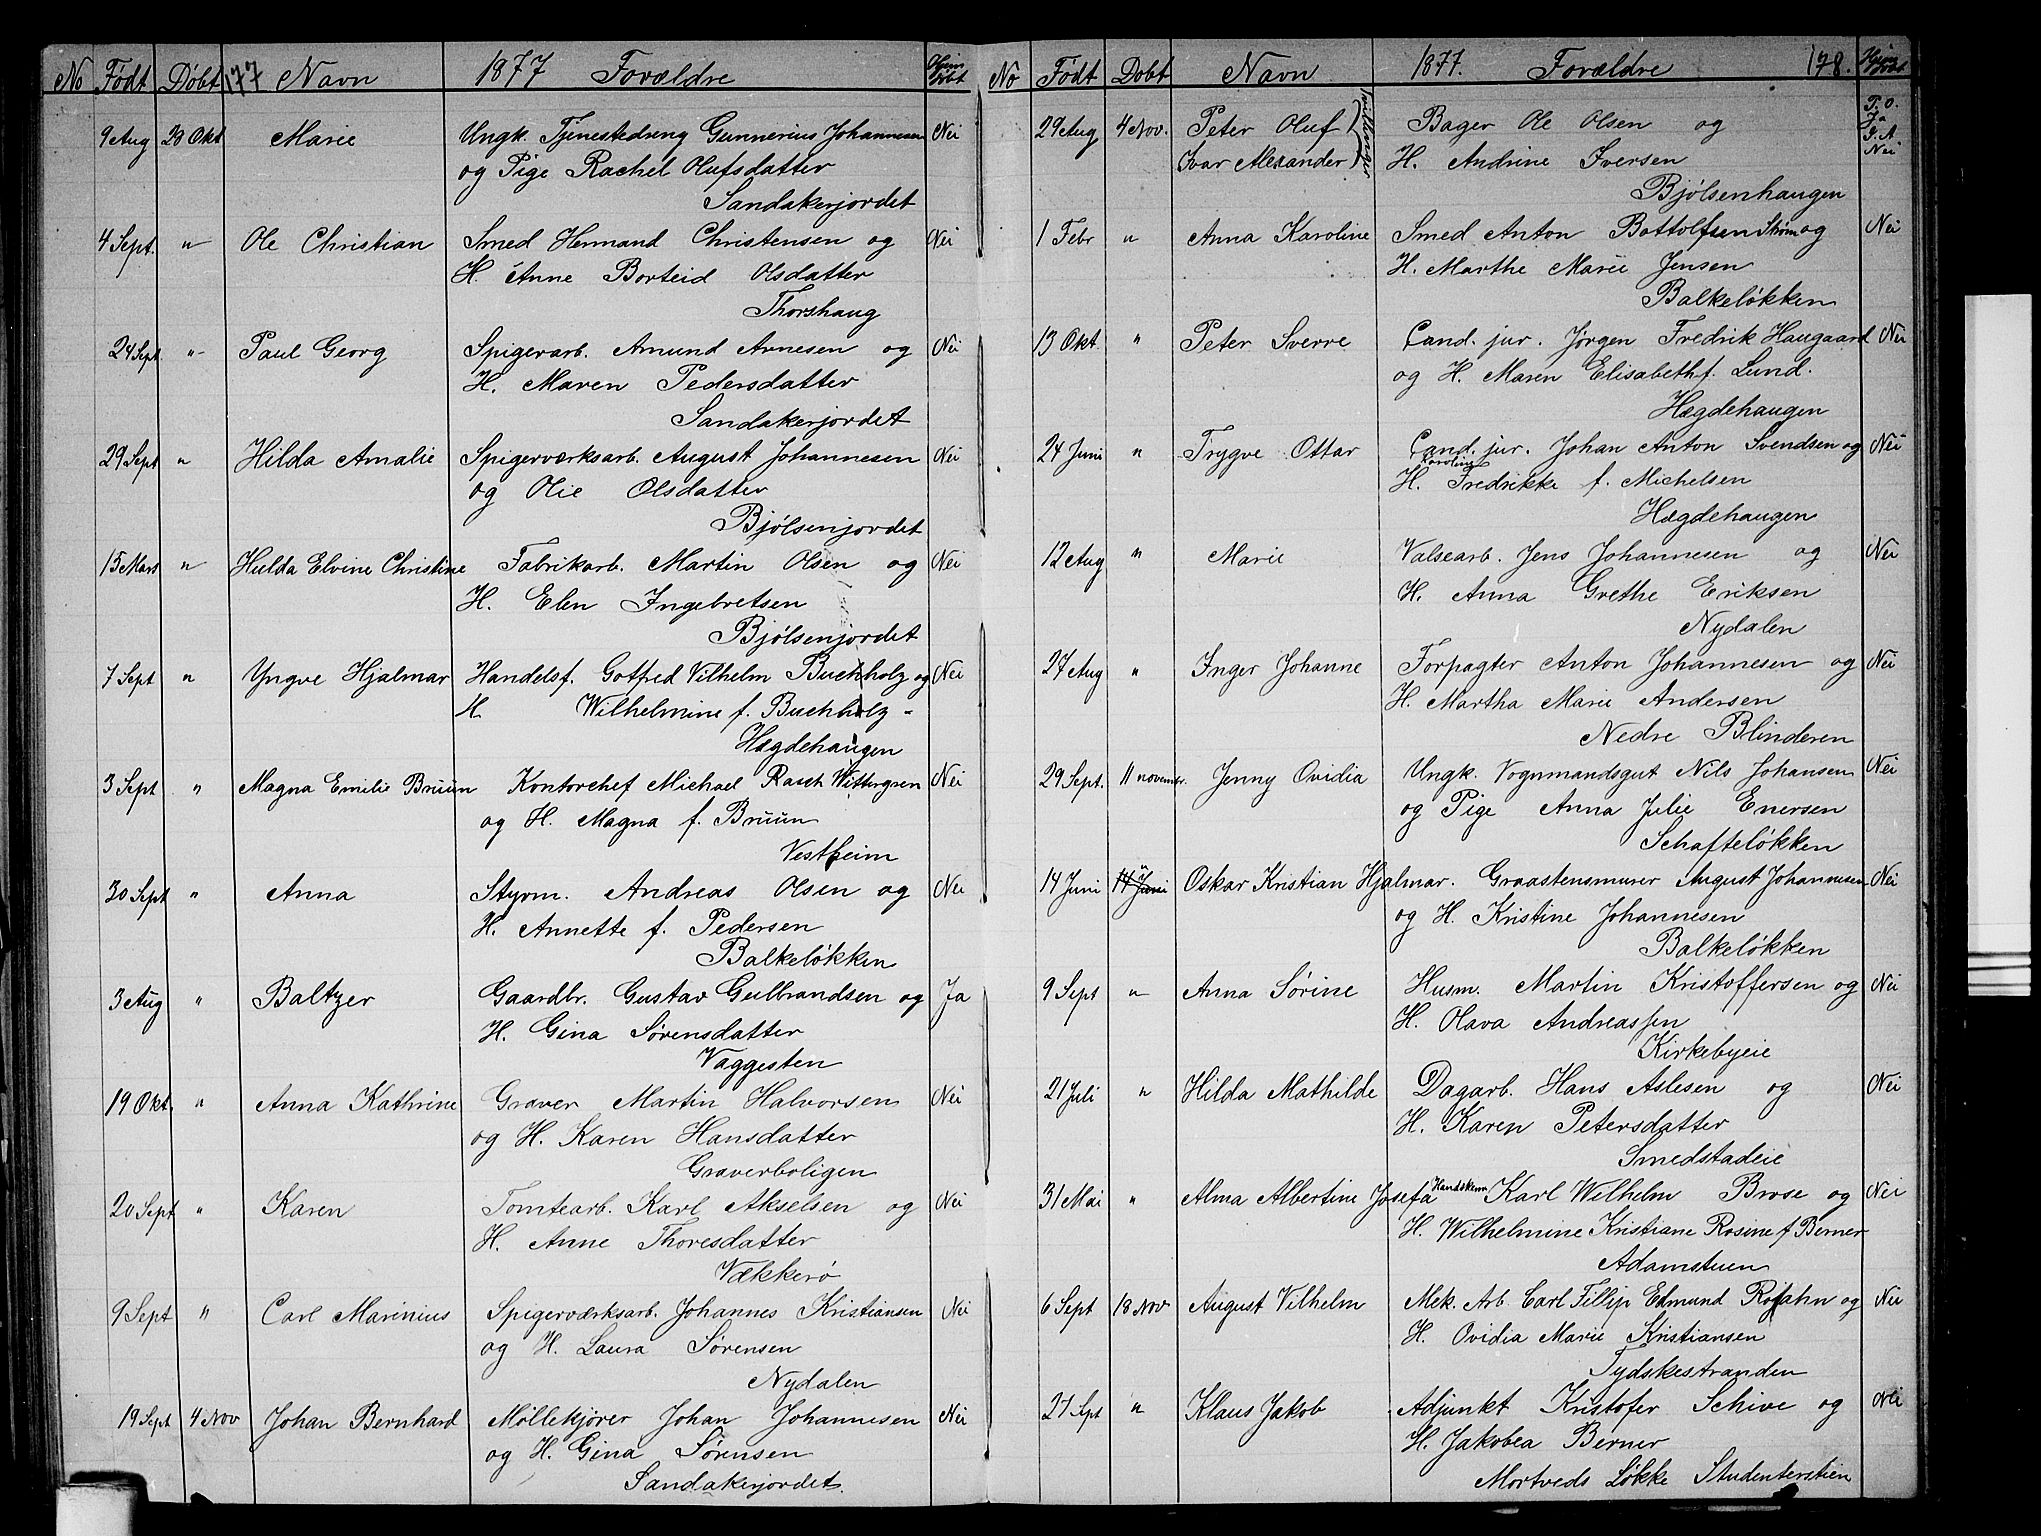 No Født Døbt 177 Navn 1877 Forældre Hjem døbt
9 Aug 20 Okt Marie Ungk. Tjenestedreng Gunnerius Johannesen Nei
og Pige Rachel Olufsdatter
Sandakerjordet
4 Sept. " Ole Christian Smed Hermand Christensen og Nei
H. Anne Borteid Olsdatter
Thorshaug
24 Sept " Paul Georg Spigerarb. Amund Arnesen og Nei
H. Maren Pedersdatter
Sandakerjordet
29 Sept " Hilda Amalie Spigerværksarb. August Johannesen Nei
og Olie Olsdatter
Bjølsenjordet
15 Mars " Hulda Elvine Christine Fabrikarb. Martin Olsen og Nei
H. Elen Ingebretsen
Bjølsenjordet
7 Sept " Yngve Hjalmar Handelsf. Gotfred Vilhelm Buchholz og Nei
H. Wilhelmine f. Buchholz
Hægdehaugen
3 Sept " Magna Emilie Bruun Kontorchef Michael Rasch Wittergren Nei
og H. Magna f. Bruun
Vestheim
30 Sept " Anna Styrm. Andreas Olsen og Nei
H. Annette f. Pedersen
Balkeløkken
3 Aug " Baltzer Gaardbr. Gustav Gulbrandsen og Ja
H. Gina Sørensdatter
Vaggesten
19 Okt. " Anna Kathrine Graver Martin Halvorsen Nei
og H. Karen Hansdatter
Graverboligen
20 Sept " Karen Tomtearb. Karl Akselsen og Nei
H. Anne Thoresdatter
Vækkerø
9 Sept " Carl Marinius Spigerværksarb. Johannes Kristiansen Nei
og H. Laura Sørensen
Nydalen
19 Sept 4 Nov Johan Bernhard Møllekjører Johan Johannesen Nei
og H. Gina Sørensen
Sandakerjordet.
No Født Døbt Navn 1877. Forældre 178. Hjem døbt
29 Aug 4 Nov. Peter Oluf Tvillinger Bager Ole Olsen og P. O. Ja
Ivar Alexander H. Andrine Iversen I. A Nei
Bjølsenhaugen
1 Febr " Anna Karoline Smed Anton Bottolfsen Strøm og Nei
H. Marthe Marie Jensen
Balkeløkken
13 Okt " Peter Sverre Cand. jur. Jørgen Fredrik Haugaard Nei
og H. Maren Elisabeth f. Lund.
Hægdehaugen
24 Juni " Trygve Ottar Cand. jur. Johan Anton Svendsen og Nei
H. Karoline Fredrikke f. Michelsen
Hægdehaugen
12 Aug " Marie Valsearb. Jens Johannesen og Nei
H. Anna Grethe Eriksen
Nydalen
27 Aug " Inger Johanne Forpagter Anton Johannesen og Nei
H. Martha Marie Andersen
Nedre Blinderen
29 Sept. 11 novembr. Jenny Ovidia Ungk. Vognmandsgut Nils Johansen Nei
og Pige Anna Julie Enersen
Schafteløkken
14 Juni " 14 Juni Oskar Kristian Hjalmar. Graastensmurer August Johannesen Nei
og H. Kristine Johannesen
Balkeløkken
9 Sept " Anna Sørine Husm. Martin Kristoffersen og Nei
H. Olava Andreassen
Kirkebyeie
21 Juli " Hilda Mathilde Dagarb. Hans Aslesen og Nei
H. Karen Petersdatter
Smedstadeie
31 Mai " Alma Albertine Josefa Handskem Karl Wilhelm Brose og Nei
H. Wilhelmine Kristiane Rosine f Berner
Adamstuen
6 Sept 18 Nov August Vilhelm Mek. Arb. Carl Fillip Edmund og Nei
H. Ovidia Marie Kristiansen
Tydskestranden
21 Sept " Klaus Jakob Adjunkt Kristofer Schive og Nei
H. Jakobea Berner
Mortveds Løkke Studenterstien